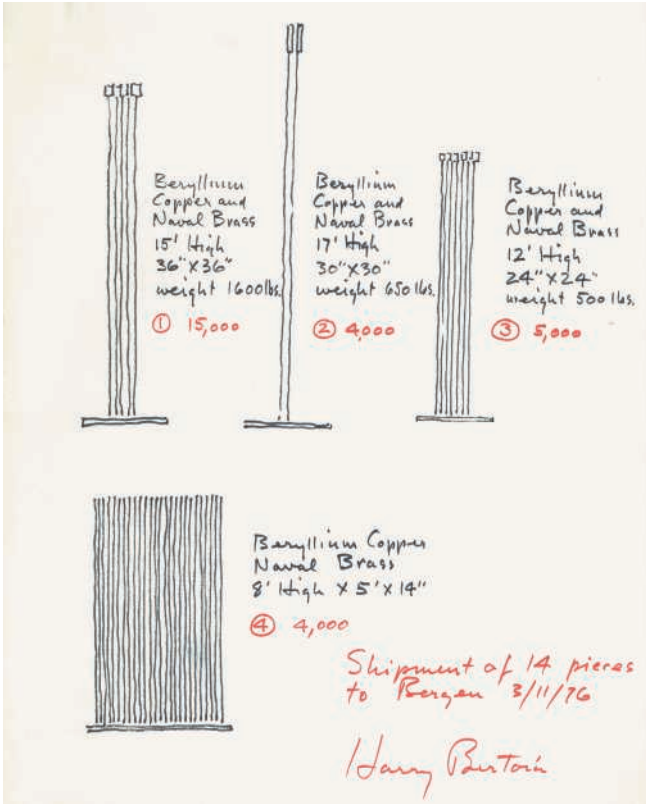 Beryllium
Copper and
Naval Brass
15' High
36"X36"
weight 1600lbs.
① 15,000
Beryllium
Copper and
Naval Brass
17' High
30"X30"
weight 650 lbs.
② 4,000
Beryllium
Copper and
Naval Brass
12' High
24"X24"
weight 500 lbs.
③ 5,000
Beryllium Copper
Naval Brass
8' High X 5'X14"
④ 4,000
Shipment of 14 pieces
to Bergen 3/11/76
Harry Bertoia